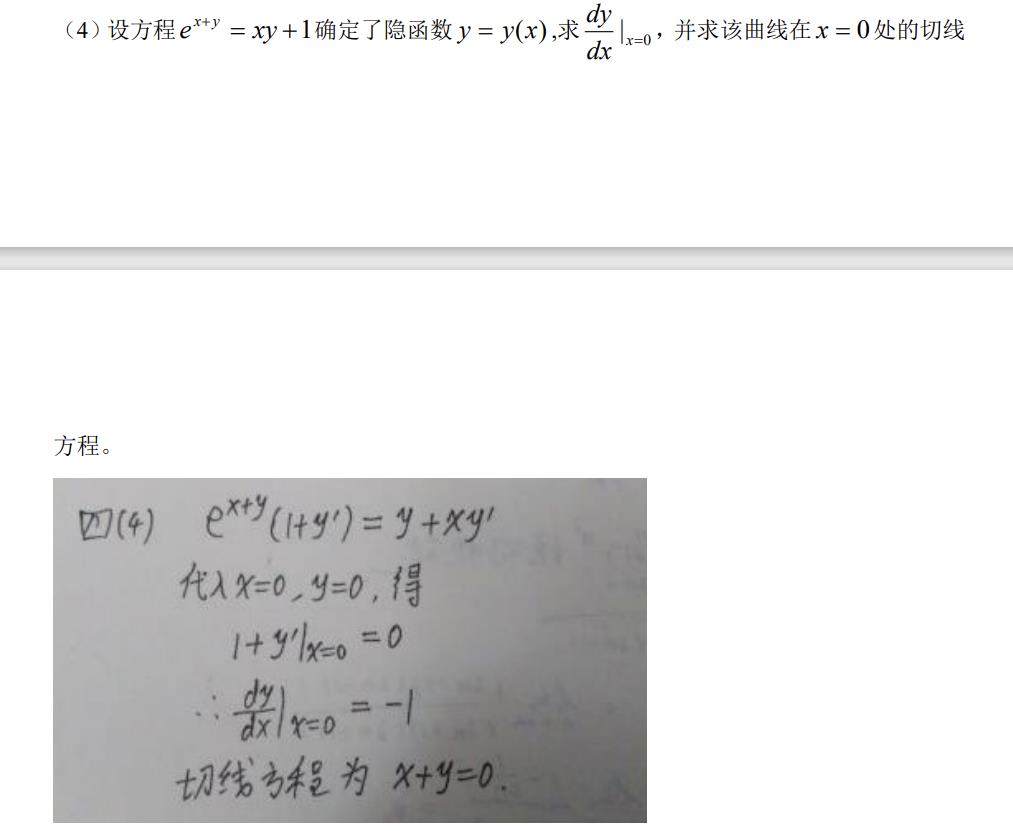 （4）设方程 e^{x+y} = xy+1 确定了隐函数 y = y(x),求 dy/dx |_{x=0}，并求该曲线在 x = 0 处的切线
方程。
四(4) e^{x+y}(1+y') = y+xy'
代入 x=0、y=0，得
1+y'|_{x=0} = 0
∴ dy/dx |_{x=0} = -1
切线方程为 x+y=0.